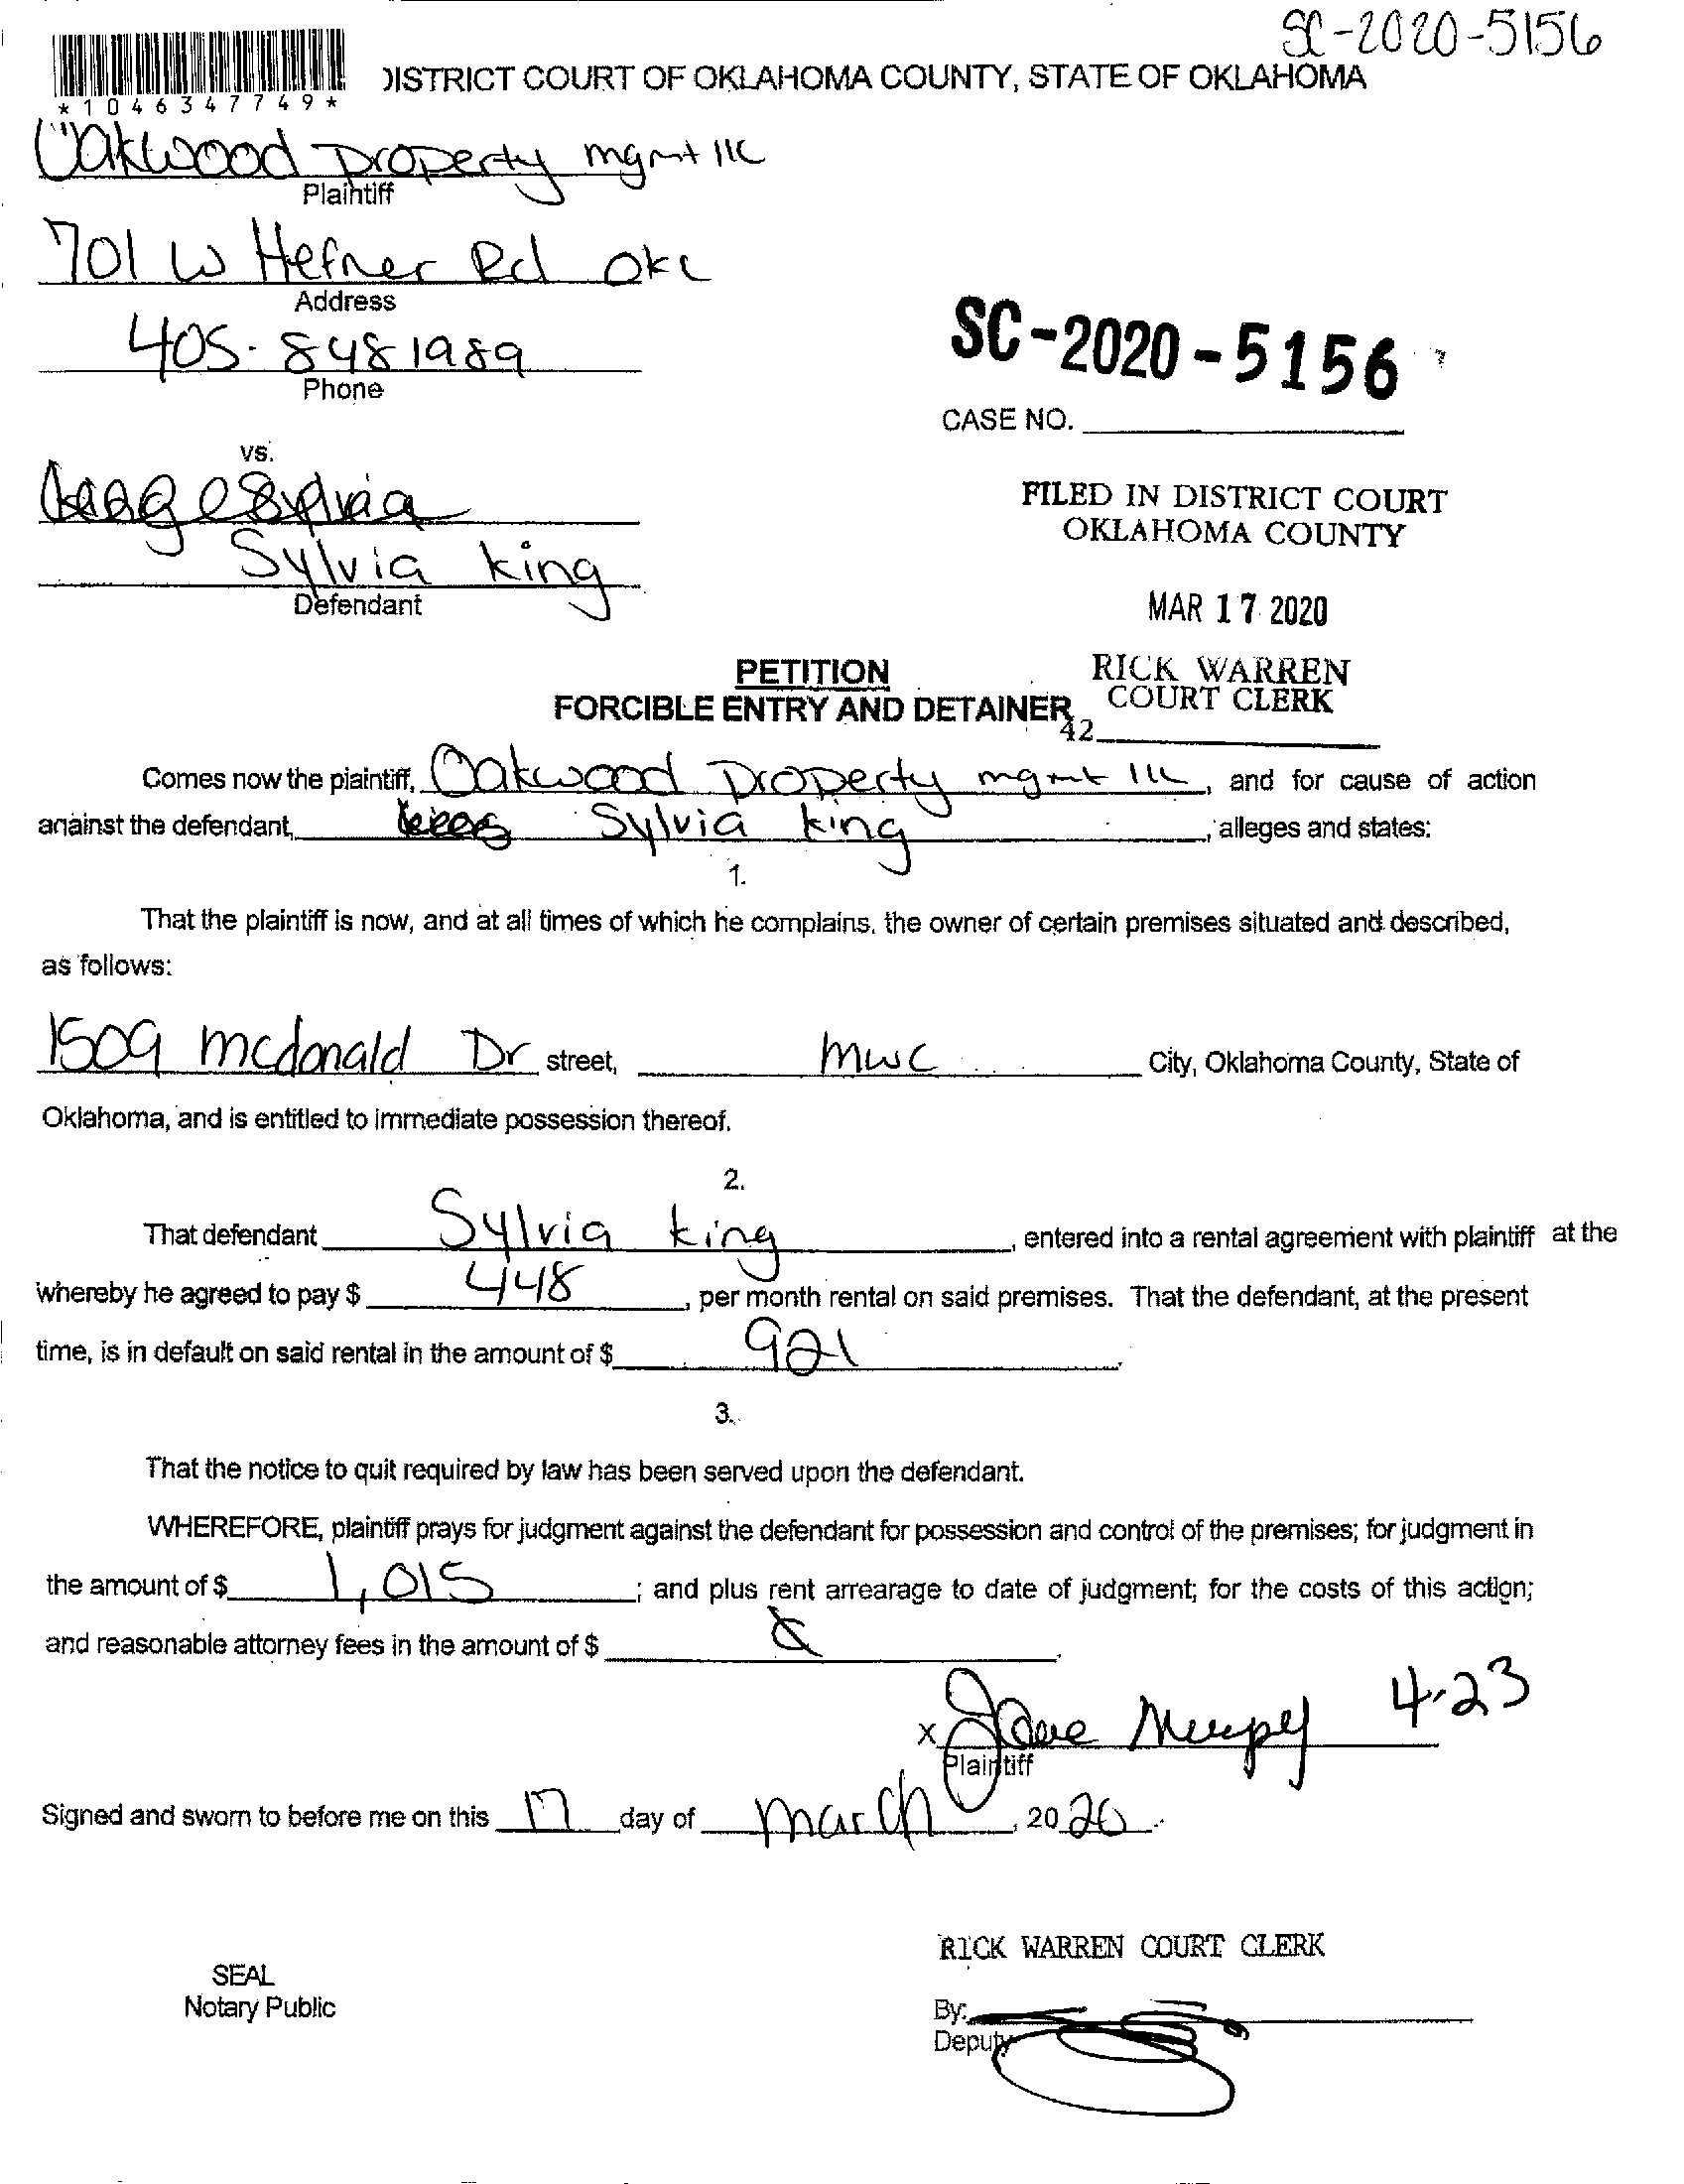 SC-2020-5156
DISTRICT COURT OF OKLAHOMA COUNTY, STATE OF OKLAHOMA
*1046347749*
Oakwood Property mgmt llc
Plaintiff
701 W Hefner Rd OKC
Address
405-848 1989
Phone
SC-2020-5156
CASE NO.
vs.
Sylvia
Sylvia King
Defendant
FILED IN DISTRICT COURT
OKLAHOMA COUNTY
MAR 17 2020
RICK WARREN
COURT CLERK
42
PETITION
FORCIBLE ENTRY AND DETAINER
Comes now the plaintiff, Oakwood Property mgmt llc, and for cause of action
against the defendant, Sylvia King, alleges and states:
1.
That the plaintiff is now, and at all times of which he complains, the owner of certain premises situated and described,
as follows:
1509 mcdonald Dr street, mwc City, Oklahoma County, State of
Oklahoma, and is entitled to immediate possession thereof.
2.
That defendant Sylvia King, entered into a rental agreement with plaintiff at the
whereby he agreed to pay $ 448, per month rental on said premises. That the defendant, at the present
time, is in default on said rental in the amount of $ 921.
3.
That the notice to quit required by law has been served upon the defendant.
WHEREFORE, plaintiff prays for judgment against the defendant for possession and control of the premises; for judgment in
the amount of $ 1,015; and plus rent arrearage to date of judgment; for the costs of this action;
and reasonable attorney fees in the amount of $
x 4-23
Plaintiff
Signed and sworn to before me on this 17 day of March, 2020.
RICK WARREN COURT CLERK
SEAL
Notary Public
By:
Deputy